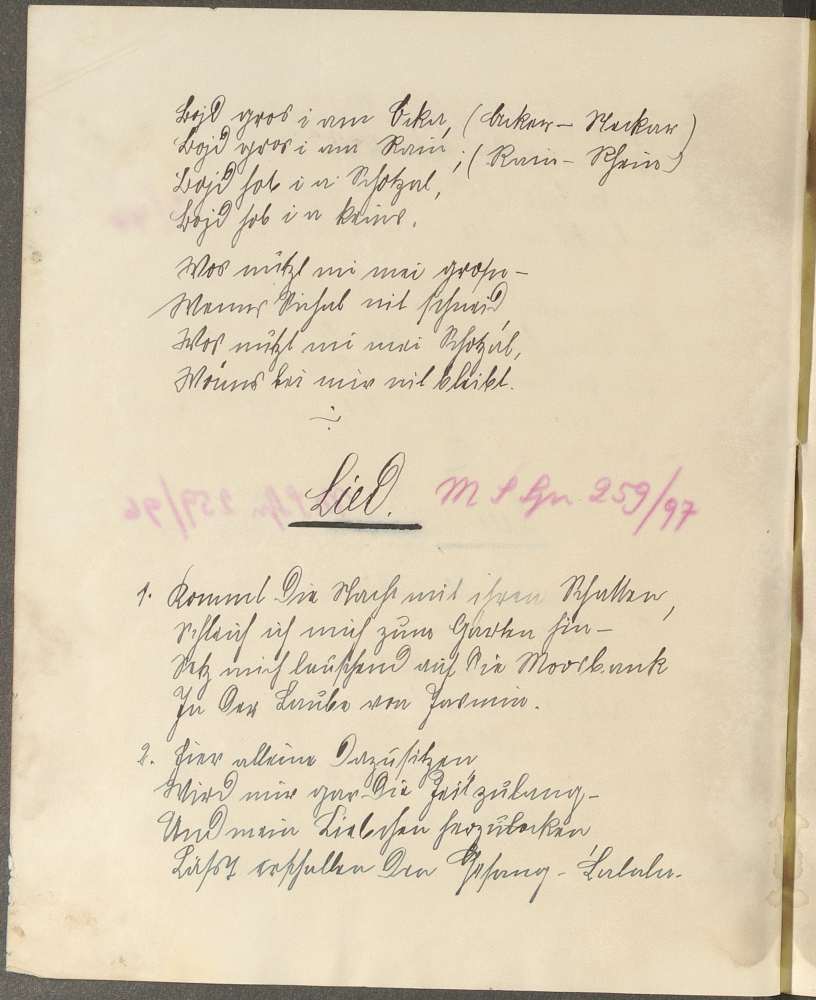 Bojd gros i am Ecka, (Acker - Neckar)
Bojd gros i am Rain; (Rain - Rhein)
Bojd hob i a Schotzal,
Bojd hob i a keins.
Wos nützt mi mei grosn -
Wenns Sichal nit schneid,
Wos nützt mi mei Schotzal,
Wonns bei mir nit bleibt.
Lied. M S Gn 259/97
1. Kommt die Nacht mit ihren Schatten,
Schleich ich mich zum Garten hin -
Setz mich lauschend auf die Moosbank
In der Laube von Jasmin.
2. Hier alleine dazusitzen
Wird mir gar die Zeit zu lang -
Und mein Liebchen herzulocken
Lässt erschallen den Gesang - Lalala.